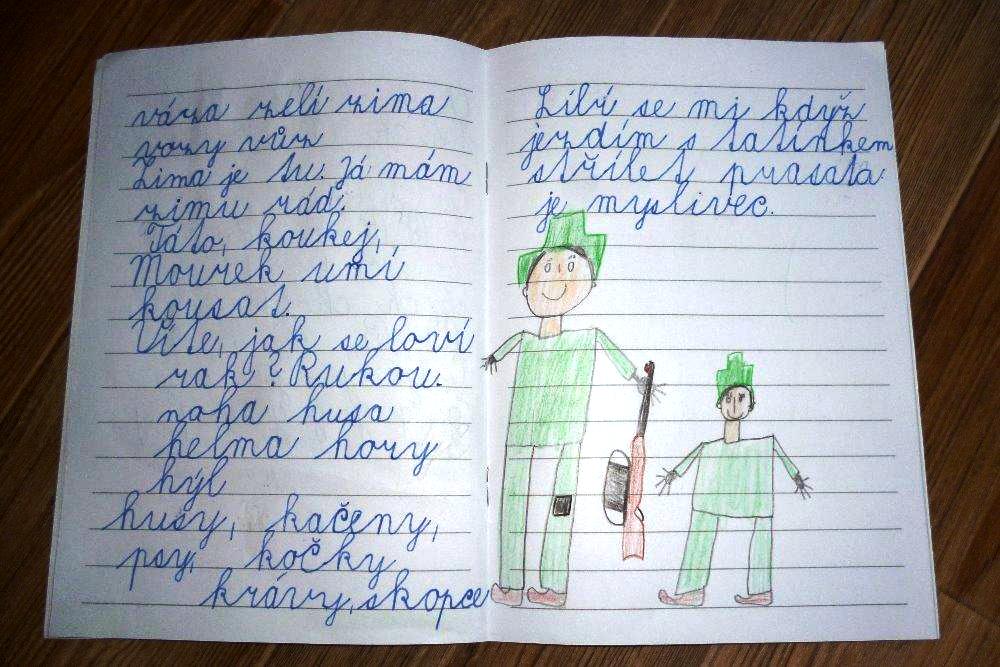 váza zelí zima
vozy vůz
Zima je tu. Já mám
zimu rád.
Táto, koukej,
Mourek umí
kousat.
Víte, jak se loví
rak? Rukou.
noha husa
helma hory
hýl
husy, kačeny,
psy, kočky
krávy, skopce
Líbí se mi když
jezdím s tatínkem
střílet prasata.
je myslivec.